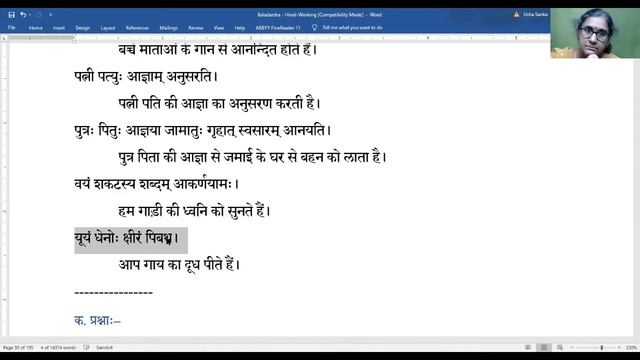 Baladarsha - Hindi-Working [Compatibility Mode] - Word
Usha Sanka
ABBYY FineReader 11
Tell me what you want to do
बच्चे माताओं के गान से आनन्दित होते हैं।
पत्नी पत्युः आज्ञाम् अनुसरति।
पत्नी पति की आज्ञा का अनुसरण करती है।
पुत्रः पितुः आज्ञया जामातुः गृहात् स्वसारम् आनयति।
पुत्र पिता की आज्ञा से जमाई के घर से बहन को लाता है।
वयं शकटस्य शब्दम् आकर्णयामः।
हम गाड़ी की ध्वनि को सुनते हैं।
यूयं धेनोः क्षीरं पिबथ।
आप गाय का दूध पीते हैं।
----------------
क. प्रश्नाः–
Page 30 of 105
4 of 14374 words
Sanskrit
230%